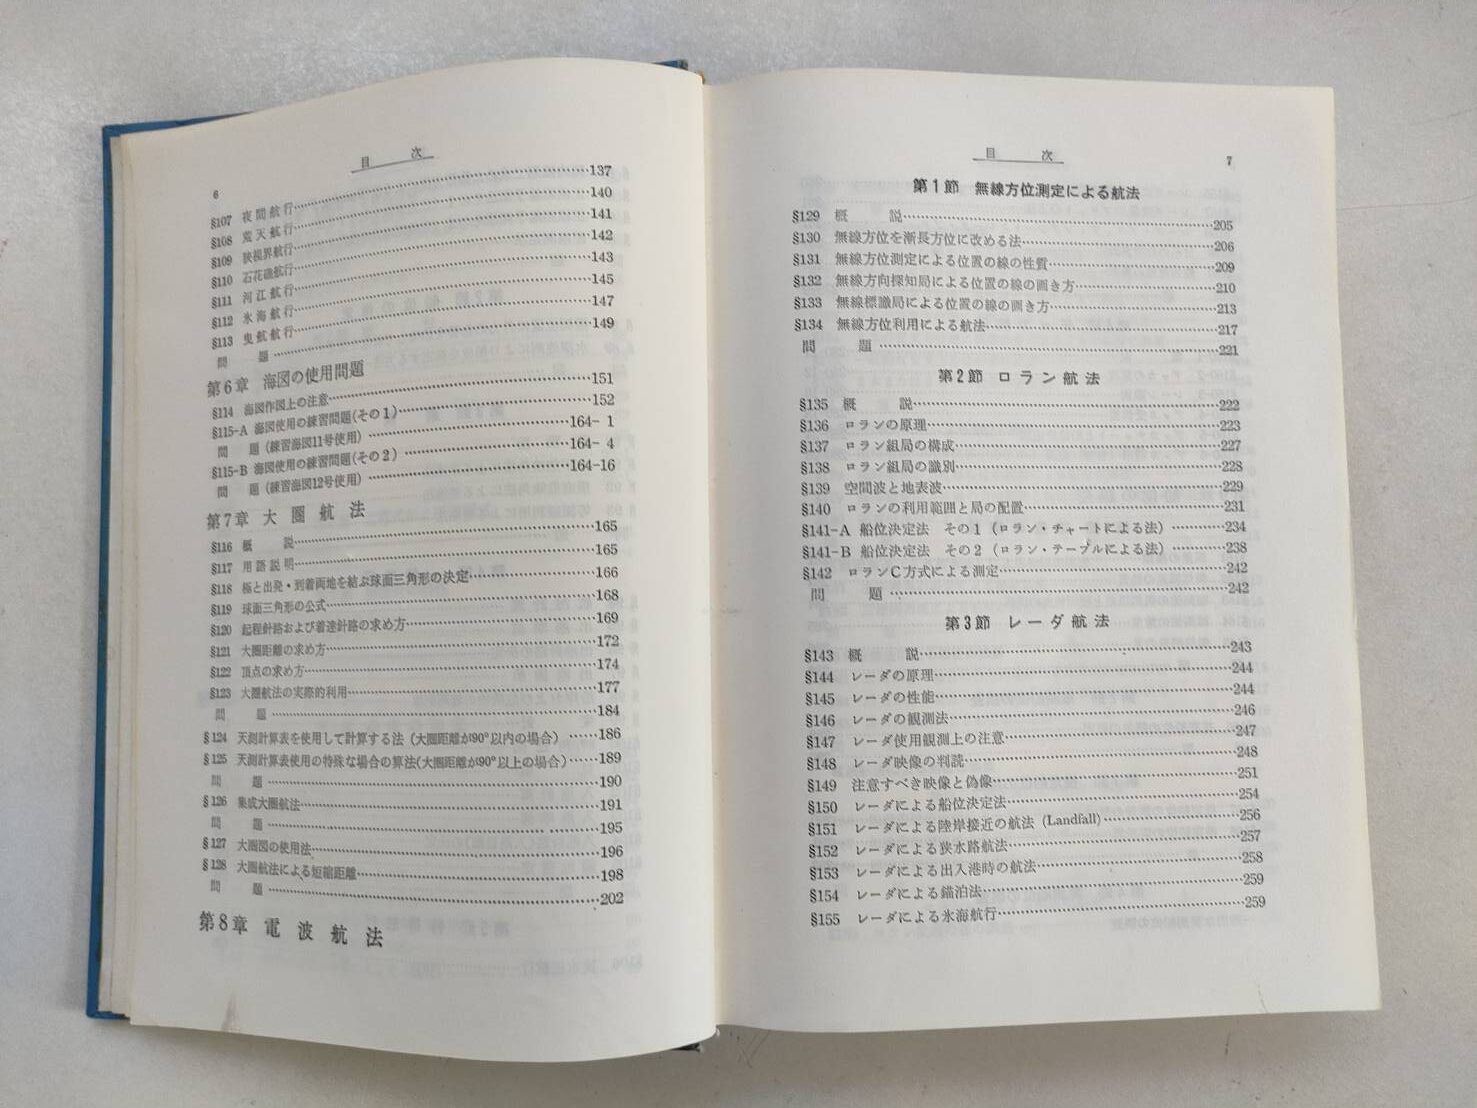 目次
6
§107 夜間航行……137
§108 荒天航行……140
§109 狭視界航行……141
§110 石花礁航行……142
§111 河江航行……143
§112 氷海航行……145
§113 曳航航行……147
問 題……149
第6章 海図の使用問題
§114 海図作図上の注意……151
§115-A 海図使用の練習問題(その1)……152
問 題(練習海図11号使用)……164- 1
§115-B 海図使用の練習問題(その2)……164- 4
問 題(練習海図12号使用)……164-16
第7章 大圏航法
§116 概 説……165
§117 用語説明……165
§118 極と出発・到着両地を結ぶ球面三角形の決定……166
§119 球面三角形の公式……168
§120 起程針路および着達針路の求め方……169
§121 大圏距離の求め方……172
§122 頂点の求め方……174
§123 大圏航法の実際的利用……177
問 題……184
§124 天測計算表を使用して計算する法(大圏距離が90°以内の場合)……186
§125 天測計算表使用の特殊な場合の算法(大圏距離が90°以上の場合)……189
問 題……190
§126 集成大圏航法……191
問 題……195
§127 大圏図の使用法……196
§128 大圏航法による短縮距離……198
問 題……202
第8章 電波航法
目次
7
第1節 無線方位測定による航法
§129 概 説……205
§130 無線方位を漸長方位に改める法……206
§131 無線方位測定による位置の線の性質……209
§132 無線方向探知局による位置の線の画き方……210
§133 無線標識局による位置の線の画き方……213
§134 無線方位利用による航法……217
問 題……221
第2節 ロラン航法
§135 概 説……222
§136 ロランの原理……223
§137 ロラン組局の構成……227
§138 ロラン組局の識別……228
§139 空間波と地表波……229
§140 ロランの利用範囲と局の配置……231
§141-A 船位決定法 その1(ロラン・チャートによる法)……234
§141-B 船位決定法 その2(ロラン・テーブルによる法)……238
§142 ロランC方式による測定……242
問 題……242
第3節 レーダ航法
§143 概 説……243
§144 レーダの原理……244
§145 レーダの性能……244
§146 レーダの観測法……246
§147 レーダ使用観測上の注意……247
§148 レーダ映像の判読……248
§149 注意すべき映像と偽像……251
§150 レーダによる船位決定法……254
§151 レーダによる陸岸接近の航法 (Landfall)……256
§152 レーダによる狭水路航法……257
§153 レーダによる出入港時の航法……258
§154 レーダによる錨泊法……259
§155 レーダによる氷海航行……259